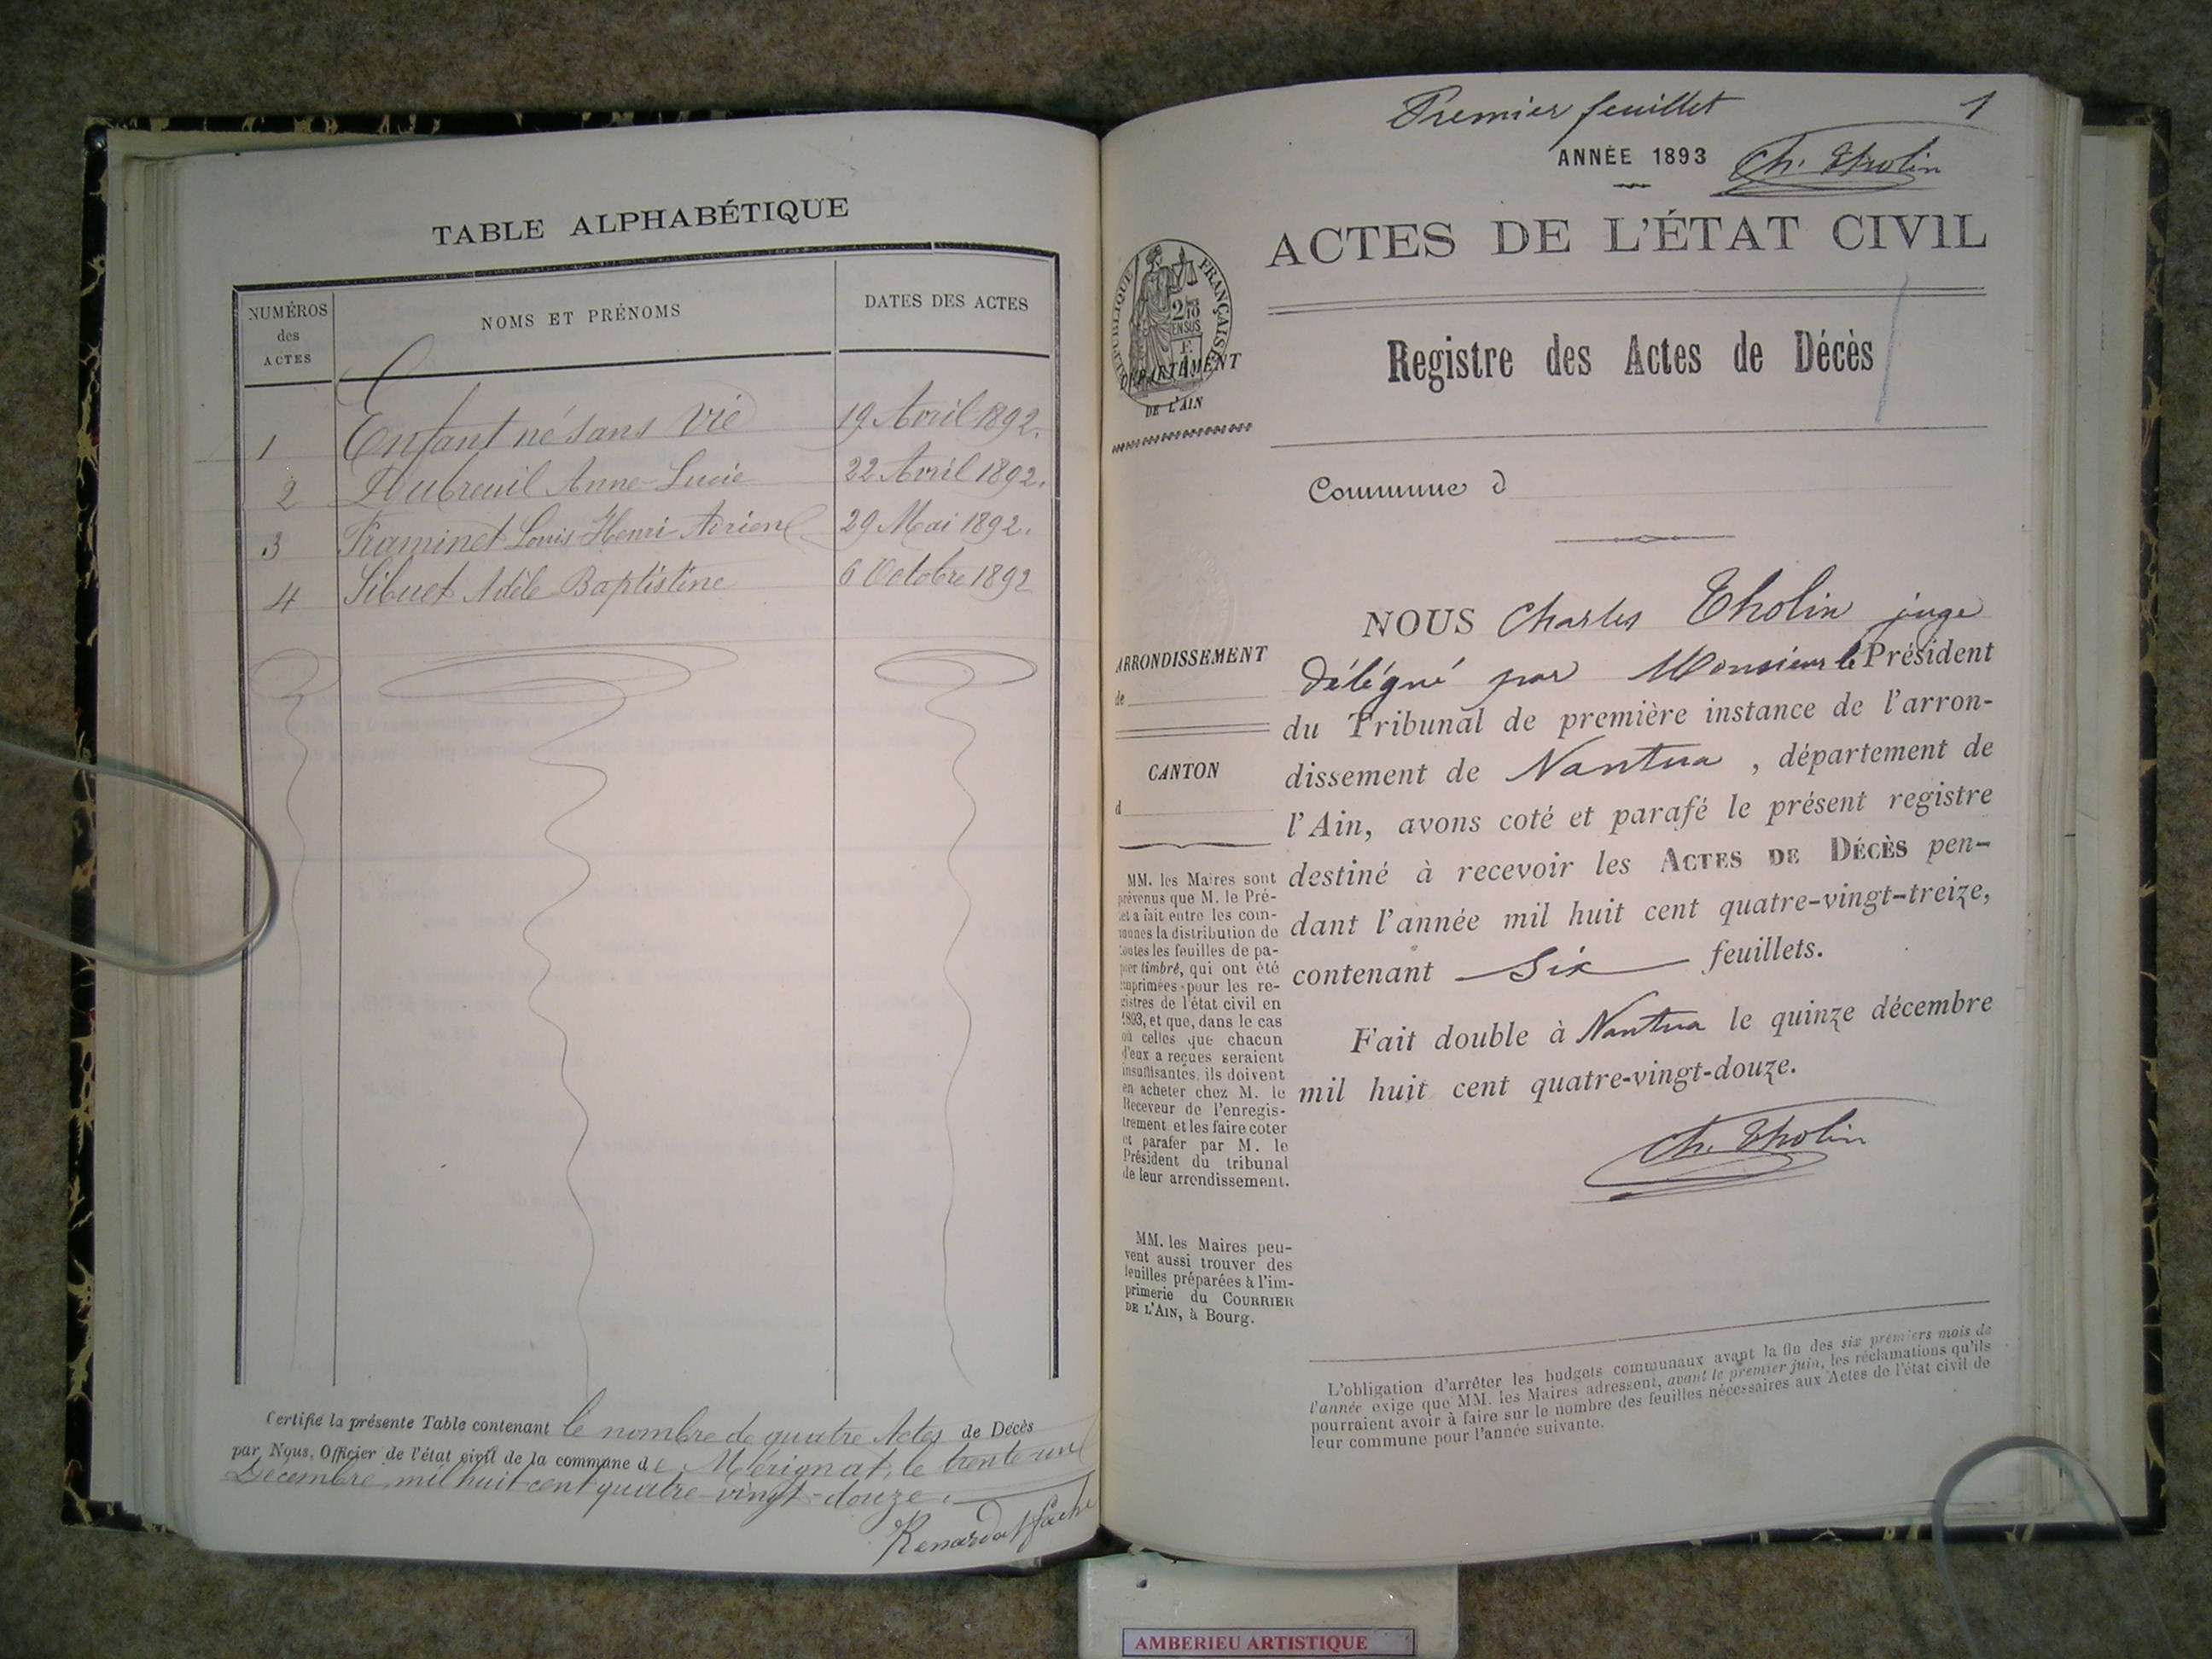 TABLE ALPHABÉTIQUE
NUMÉROS
des
ACTES
NOMS ET PRÉNOMS
DATES DES ACTES
1 Enfant né sans vie 19 Avril 1892.
2 Dubreuil Anne-Lucie 22 Avril 1892.
3 Louis-Henri 29 Mai 1892.
4 Sibuet Adèle Baptistine 6 Octobre 1892
Certifié la présente Table contenant le nombre de quatre Actes de Décès
par Nous, Officier de l'état civil de la commune de Mérignat, le trente un
Décembre mil huit cent quatre-vingt-douze.
Premier feuillet 1
ANNÉE 1893 Ch. Tholin
ACTES DE L'ÉTAT CIVIL
RÉPUBLIQUE FRANÇAISE
DÉPARTEMENT
DE L'AIN
Registre des Actes de Décès
Commune d
NOUS Charles Tholin juge
délégué par Monsieur le Président
du Tribunal de première instance de l'arron-
dissement de Nantua, département de
l'Ain, avons coté et parafé le présent registre
destiné à recevoir les ACTES DE DÉCÈS pen-
dant l'année mil huit cent quatre-vingt-treize,
contenant six feuillets.
Fait double à Nantua le quinze décembre
mil huit cent quatre-vingt-douze.
Ch. Tholin
ARRONDISSEMENT
de
CANTON
d
MM. les Maires sont
prévenus que M. le Pré-
fet a fait entre les com-
munes la distribution de
toutes les feuilles de pa-
pier timbré, qui ont été
imprimées pour les re-
gistres de l'état civil en
1893, et que, dans le cas
où celles que chacun
d'eux a reçues seraient
insuffisantes, ils doivent
en acheter chez M. le
Receveur de l'enregis-
trement et les faire coter
et parafer par M. le
Président du tribunal
de leur arrondissement.
MM. les Maires peu-
vent aussi trouver des
feuilles préparées à l'im-
primerie du COURRIER
DE L'AIN, à Bourg.
L'obligation d'arrêter les budgets communaux avant la fin des six premiers mois de
l'année exige que MM. les Maires adressent, avant le premier juin, les réclamations qu'ils
pourraient avoir à faire sur le nombre des feuilles nécessaires aux Actes de l'état civil de
leur commune pour l'année suivante.
AMBERIEU ARTISTIQUE